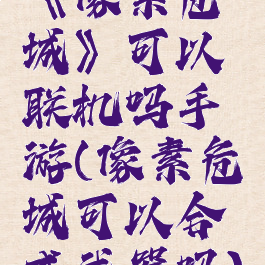 《像素危
城》可以
联机吗手
游(像素危
城可以合
成武器吗)